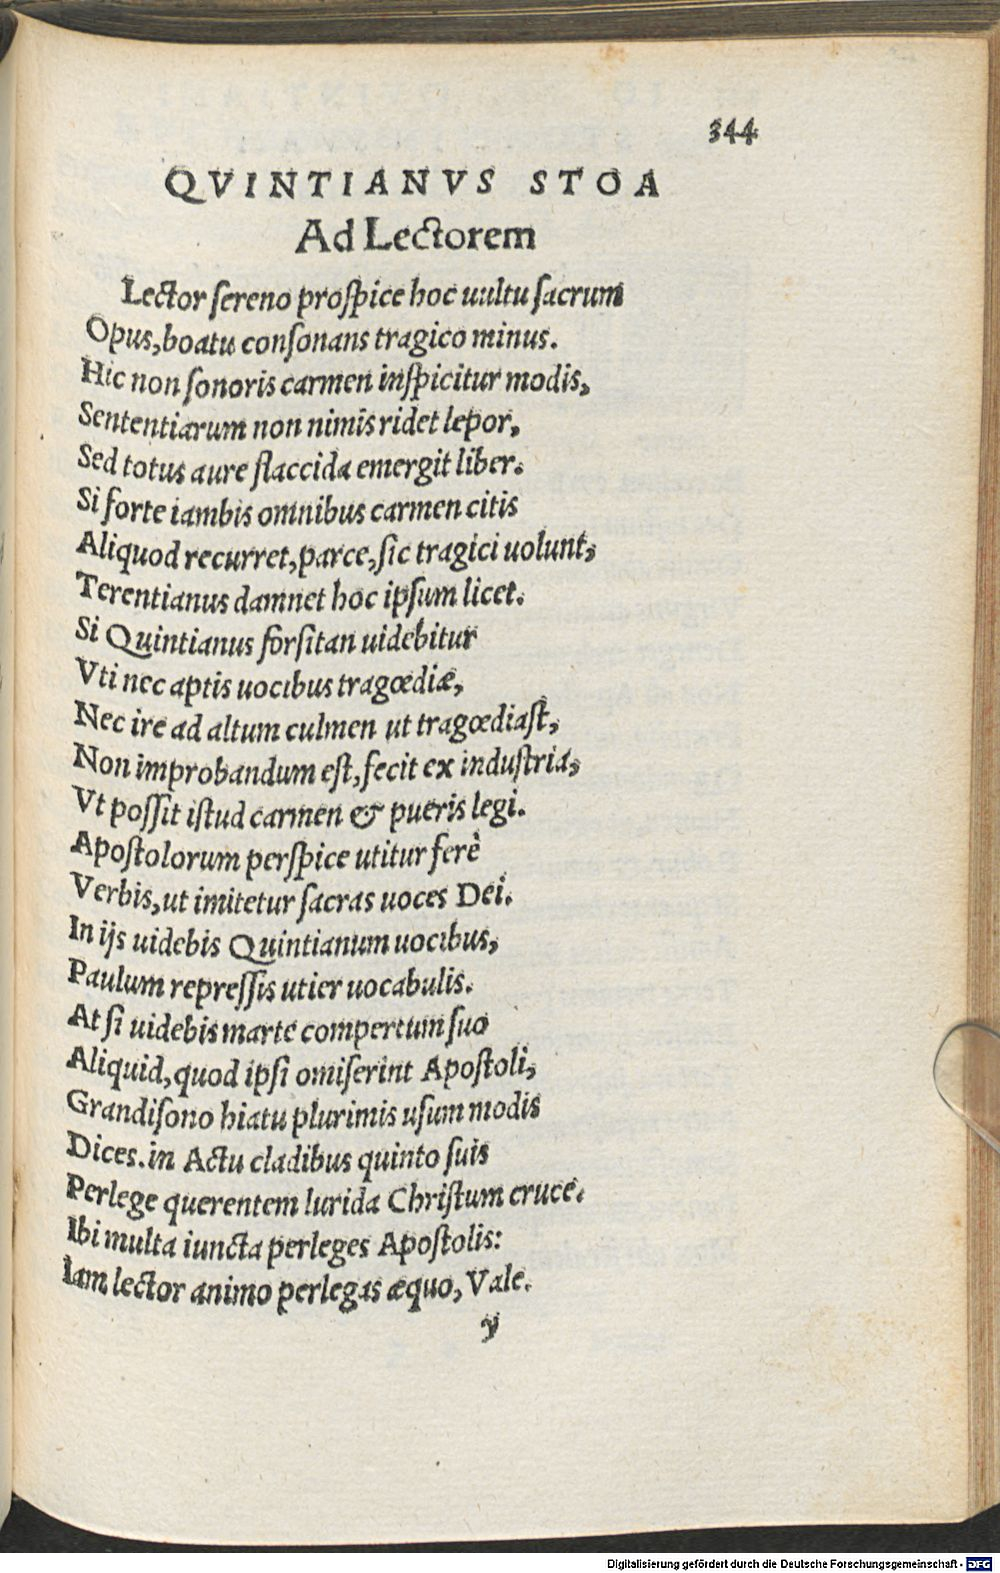 344
QVINTIANVS STOA
Ad Lectorem
Lector sereno prospice hoc uultu sacrum
Opus, boatu consonans tragico minus.
Hic non sonoris carmen inspicitur modis,
Sententiarum non nimis ridet lepor,
Sed totus aure flaccida emergit liber.
Si forte iambis omnibus carmen citis
Aliquod recurret, parce, sic tragici uolunt,
Terentianus damnet hoc ipsum licet.
Si Quintianus forsitan uidebitur
Vti nec aptis uocibus tragœdiæ,
Nec ire ad altum culmen ut tragœdiast,
Non improbandum est, fecit ex industria,
Vt possit istud carmen & pueris legi.
Apostolorum perspice utitur ferè
Verbis, ut imitetur sacras uoces Dei.
In ijs uidebis Quintianum uocibus,
Paulum repressis utier uocabulis.
At si uidebis marte compertum suo
Aliquid, quod ipsi omiserint Apostoli,
Grandisono hiatu plurimis usum modis
Dices. in Actu cladibus quinto suis
Perlege querentem lurida Christum cruce.
Ibi multa iuncta perleges Apostolis:
Iam lector animo perlegas æquo, Vale.
y
Digitalisierung gefördert durch die Deutsche Forschungsgemeinschaft - DFG